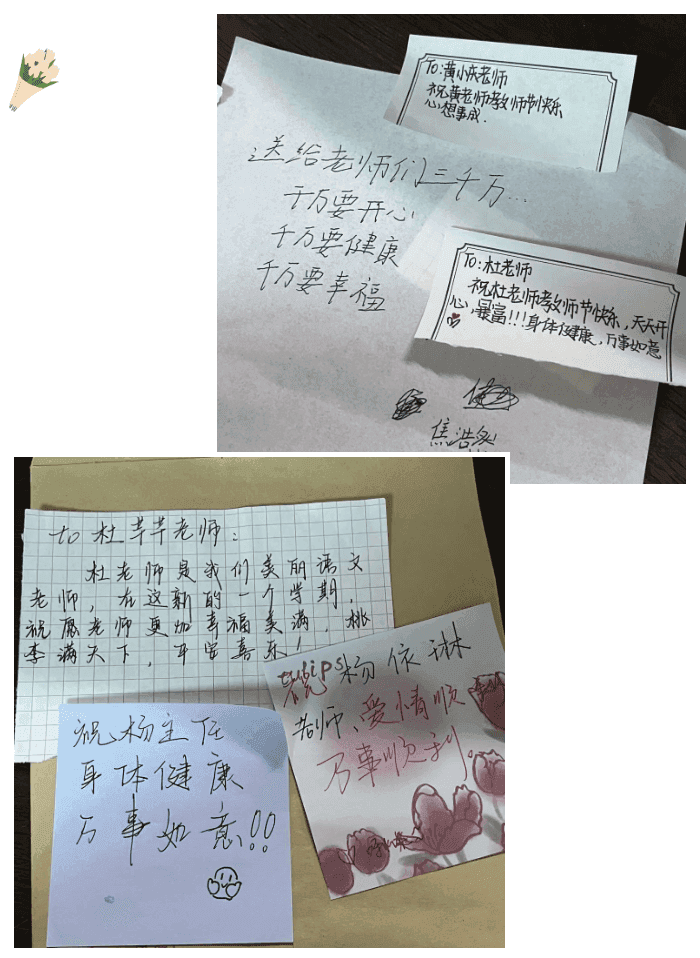 To:黄小庆老师
祝黄老师教师节快乐
心想事成.
送给老师们三千万...
千万要开心
千万要健康
千万要幸福
To:杜老师
祝杜老师教师节快乐,天天开
心,暴富!!!身体健康,万事如意
焦浩然
to 杜芊芊老师:
杜老师是我们美丽语文
老师,在这新的一个学期,
祝愿老师更加幸福美满,桃
李满天下,平安喜乐!
tulips
祝杨依琳
老师、爱情顺
万事顺利.
祝杨主任
身体健康
万事如意!!